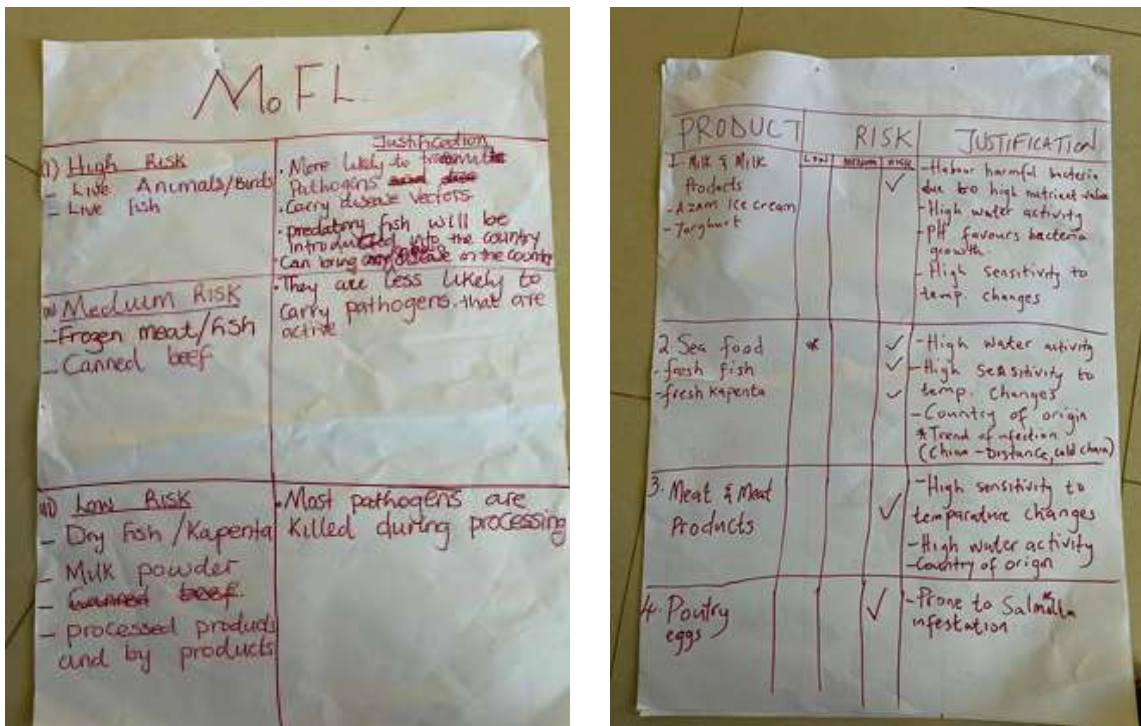 MoFL.
i) High Risk
- Live Animals/Birds
- Live fish
Justification
• More likely to transmit
Pathogens
• Carry disease vectors
• predatory fish will be
introducted into the country
• Can bring disease in the country
ii) Medium RISK
- Frozen meat/fish
- Canned beef
• They are less likely to
carry pathogens that are
active
iii) Low RISK
- Dry fish/Kapenta
- Milk powder
- Canned beef.
- processed products
and by products
• Most pathogens are
killed during processing
PRODUCT RISK JUSTIFICATION
Low Medium
1. Milk & Milk
Products
- Azam Ice cream
- Yorghurt
✓
- Habour harmful bacteria
due to high nutrient value
- High water activity
- PH favours bacteria
growth.
- High sensitivity to
temp. changes
2. Sea food
- fresh fish
- fresh Kapenta
*
✓
✓
✓
- High water activity
- High sensitivity to
temp. changes
- Country of origin
* Trend of infection
(China - Distance, cold chain)
3. Meat & Meat
Products
✓
- High sensitivity to
temperature changes
- High water activity
- Country of origin
4. Poutry
eggs
✓
- Prone to
infestation